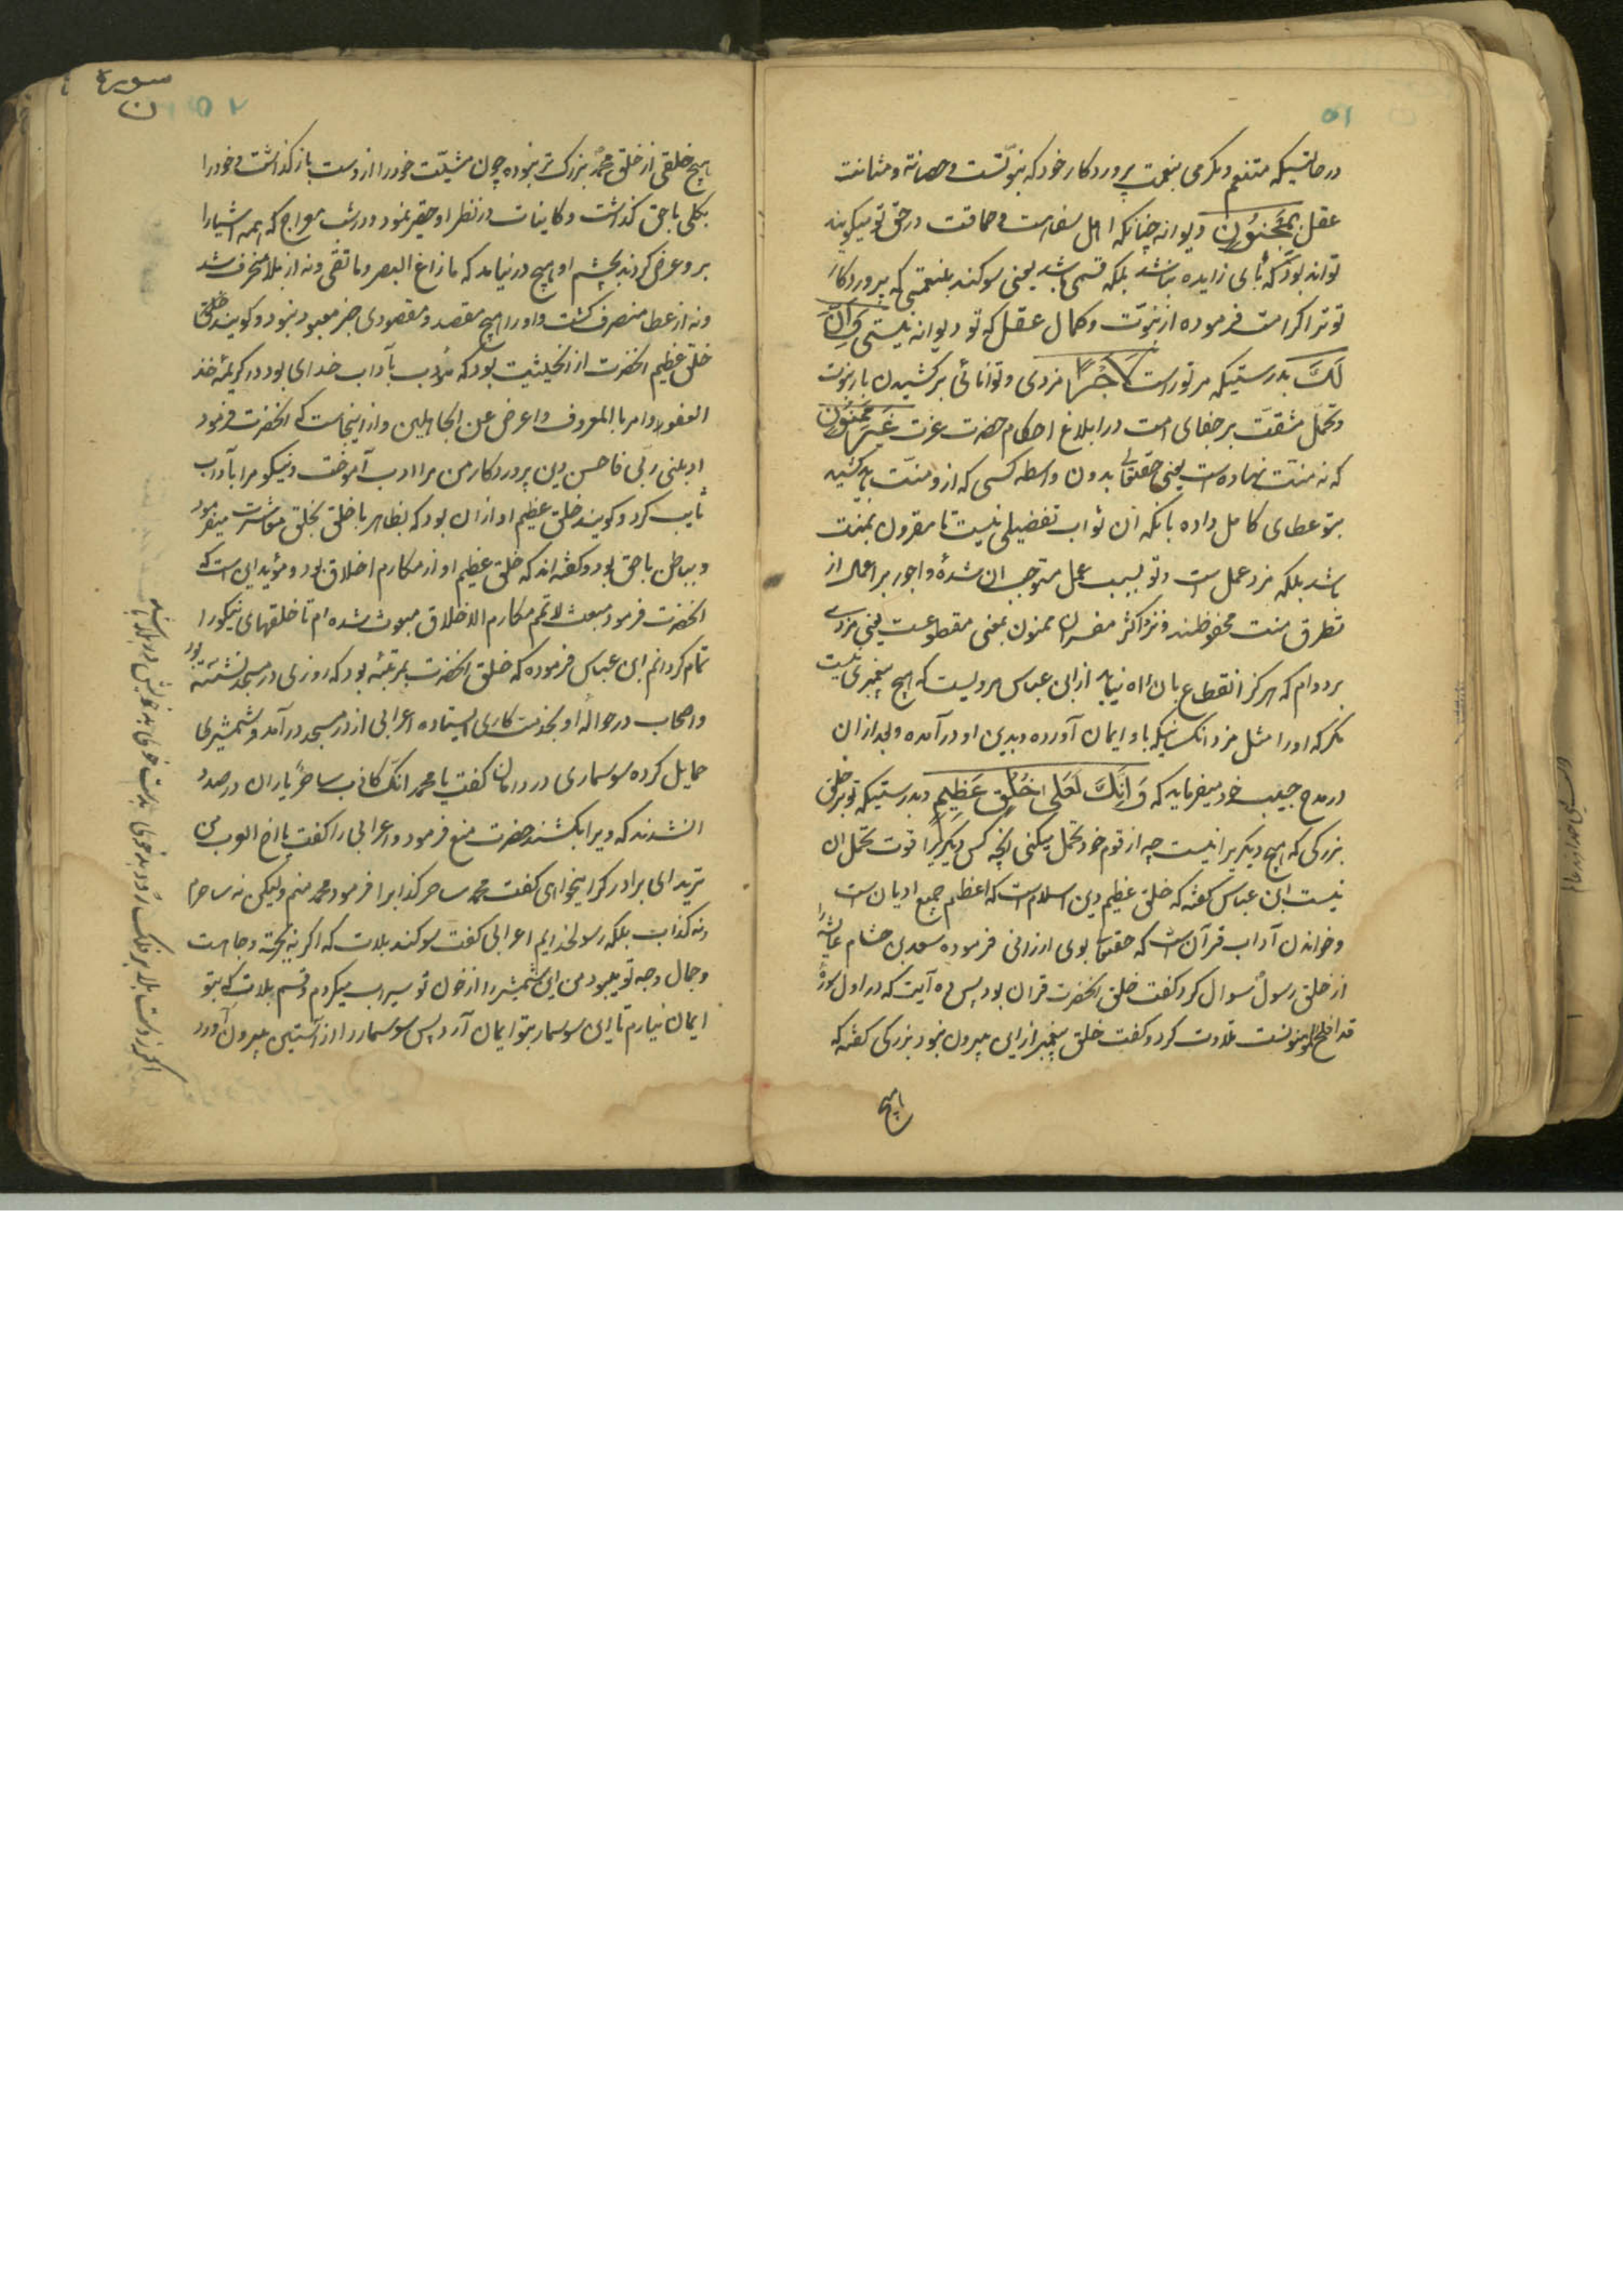 ۵۱
در حالتیکه متنعم و مکرمی بنعمت پروردکار خود که نبوّتست و حصانة و متانت
عقل بِمَجْنُونٍ دیوانه چنانکه اهل سفاهت و حماقت در حق تو میکویند
تواند بود که بای زایده نباشد بلکه قسمی باشد یعنی سوکند بنعمتی که پروردکار
تو ترا کرامت فرموده از نبوّت و کمال عقل که تو دیوانه نیستی وَاِنَّ
لَكَ بدرستیکه مر تو راست لَاَجْرًا مزدی و توانائی بر کشیدن بار نبوت
و تحمّل مشقّت بر جفای امت در ابلاغ احکام حضرت عزت غَيْرَ مَمْنُونٍ
که نه منّت نهاده است یعنی حقتعالی بدون واسطه کسی که ازو منّت باید کشید
بتو عطای کامل داده بانکه ان ثواب تفضیلی نیست تا مقرون بمنت
باشد بلکه مزد عمل است و تو بسبب عمل مستوجب ان شدهٔ و اجور بر اعمال از
تطرق منت محفوظند و نزد اکثر مفسران ممنون بمعنی مقطوعست یعنی مزدی
بر دوام که هرکز انقطاع بان راه نیابد از ابن عباس مرویست که هیچ پیغمبری نیست
مکر که او را مثل مزد انکسانیکه باو ایمان آورده و بدین او درآمده و بعد از ان
در مدح حبیب خود میفرماید که وَاِنَّكَ لَعَلٰى خُلُقٍ عَظِيْمٍ و بدرستیکه تو بر خلق
بزرکی که هیچ دیکریرا نیست چه از قوم خود تحمل میکنی انچه کس دیکریرا قوت تحمل ان
نیست ابن عباس کفته که خلق عظیم دین اسلام است که اعظم جمیع ادیان است
و خواندن آداب قرآن است که حقتعالی بوی ارزانی فرموده سعد بن هشام عایشه را
از خلق رسول سوال کرد کفت خلق انحضرت قران بود پس ده آیت که در اول سورهٔ
قد افلح المومنونست تلاوت کرد و کفت خلق پیغمبر از این بیرون نبود بزرکی کفته که
هیچ
سورة
ن
۵۲
هیچ خلقی از خلق محمد بزرک تر نبوده چون مشیّت خود را از دست بازکذاشت و خود را
بکلی باحق کذاشت و کاینات در نظر او حقیر نمود و در شب معراج که همه اشیا را
برو عرض کردند بچشم او هیچ درنیامد که ما زاغ البصر وما تقی و نه از بلا منحرف شد
و نه از عطا منصرف کشت و او را هیچ مقصد و مقصودی جز معبود نبود و کویند خلق
خلق عظیم انحضرت از انحیثیت بود که مؤدب بآداب خدای بود در کریمهٔ خذ
العفو وامر بالمعروف واعرض عن الجاهلین و از اینجاست که انحضرت فرمود
ادبنی ربّی فاحسن دین پروردکار من مرا ادب آموخت و نیکو مرا بآداب
تأیب کرد و کویند خلق عظیم او از ان بود که بظاهر با خلق بخلق معاشرت مینمود
و بباطن باحق بود و کفته‌اند که خلق عظیم او از مکارم اخلاق بود و مؤید این است که
انحضرت فرمود بعثت لاتمم مکارم الاخلاق مبعوث شده‌ام تا خلقهای نیکو را
تمام کردانم ابن عباس فرموده که خلق انحضرت بمرتبهٔ بود که روزی در مسجد نشسته بود
و اصحاب در حوالهٔ او بخدمت کاری ایستاده اعرابی از در مسجد درآمد و شمشیری
حمایل کرده سوسماری در دامان کفت یا محمد انک کاذب ساحر یاران در صدد
انشدند که ویرا بکشند حضرت منع فرمود و اعرابی را کفت یا اخ العرب من
ترید ای برادر کرا میخواهی کفت محمد ساحر کذابرا فرمود محمد منم ولیکن نه ساحرم
و نه کذاب بلکه رسولخدایم اعرابی کفت سوکند بلات که اکر نه بهجته و جاهت
و جمال وجه تو میبود من این شمشیر را از خون تو سیراب میکردم و قسم بلات که بتو
ایمان نیارم تا این سوسمار بتو ایمان آرد پس سوسمار را از آستین بیرون آورد